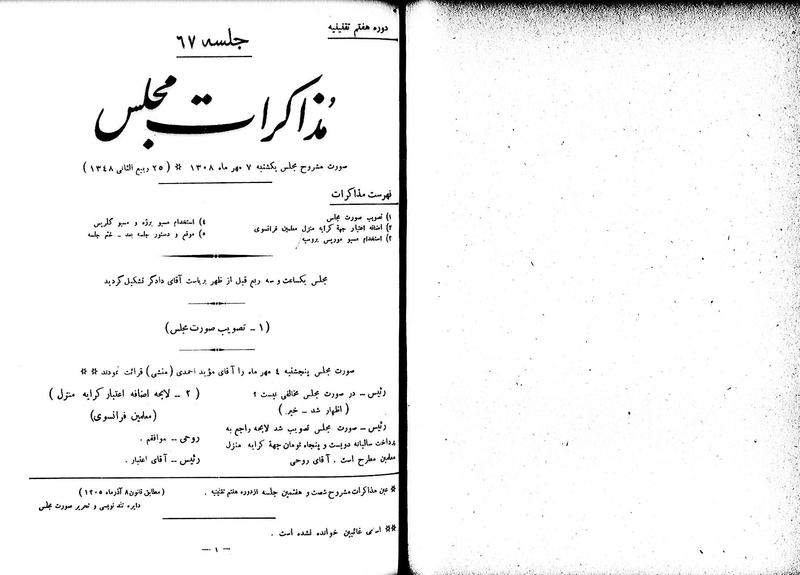 دوره هفتم تقنینیه
جلسه ۶۷
مُذاکرات مجلس
صورت مشروح مجلس یکشنبه ۷ مهر ماه ۱۳۰۸ * ( ۲۵ ربیع الثانی ۱۳۴۸ )
فهرست مذاکرات
۱) تصویب صورت مجلس
۲) اضافه اعتبار جهة کرایه منزل معلمین فرانسوی
۳) استخدام مسیو موریس بروسیه
۴) استخدام مسیو برژه و مسیو کلریس
۵) موقع و دستور جلسه بعد ــ ختم جلسه
مجلس یکساعت و سه ربع قبل از ظهر بریاست آقای دادگر تشکیل گردید
(۱ ــ تصویب صورت مجلس)
صورت مجلس پنجشنبه ۴ مهر ماه را آقای مؤید احمدی (منشی) قرائت نمودند **
رئیس ــ در صورت مجلس مخالفی نیست ؟
( اظهار شد ــ خیر )
رئیس ــ صورت مجلس تصویب شد لایحه راجع به
پرداخت سالیانه دویست و پنجاه تومان جهة کرایه منزل
معلمین مطرح است . آقای روحی
( ۲ ــ لایحه اضافه اعتبار کرایه منزل )
(معلمین فرانسوی)
روحی ــ موافقم .
رئیس ــ آقای اعتبار .
* عین مذاکرات مشروح شصت و هفتمین جلسه از دوره هفتم تقنینیه . (مطابق قانون ۸ آذرماه ۱۳۰۵ )
دایره تند نویسی و تحریر صورت مجلس
** اسامی غائبین خوانده نشده است .
ــ ۱ ــ